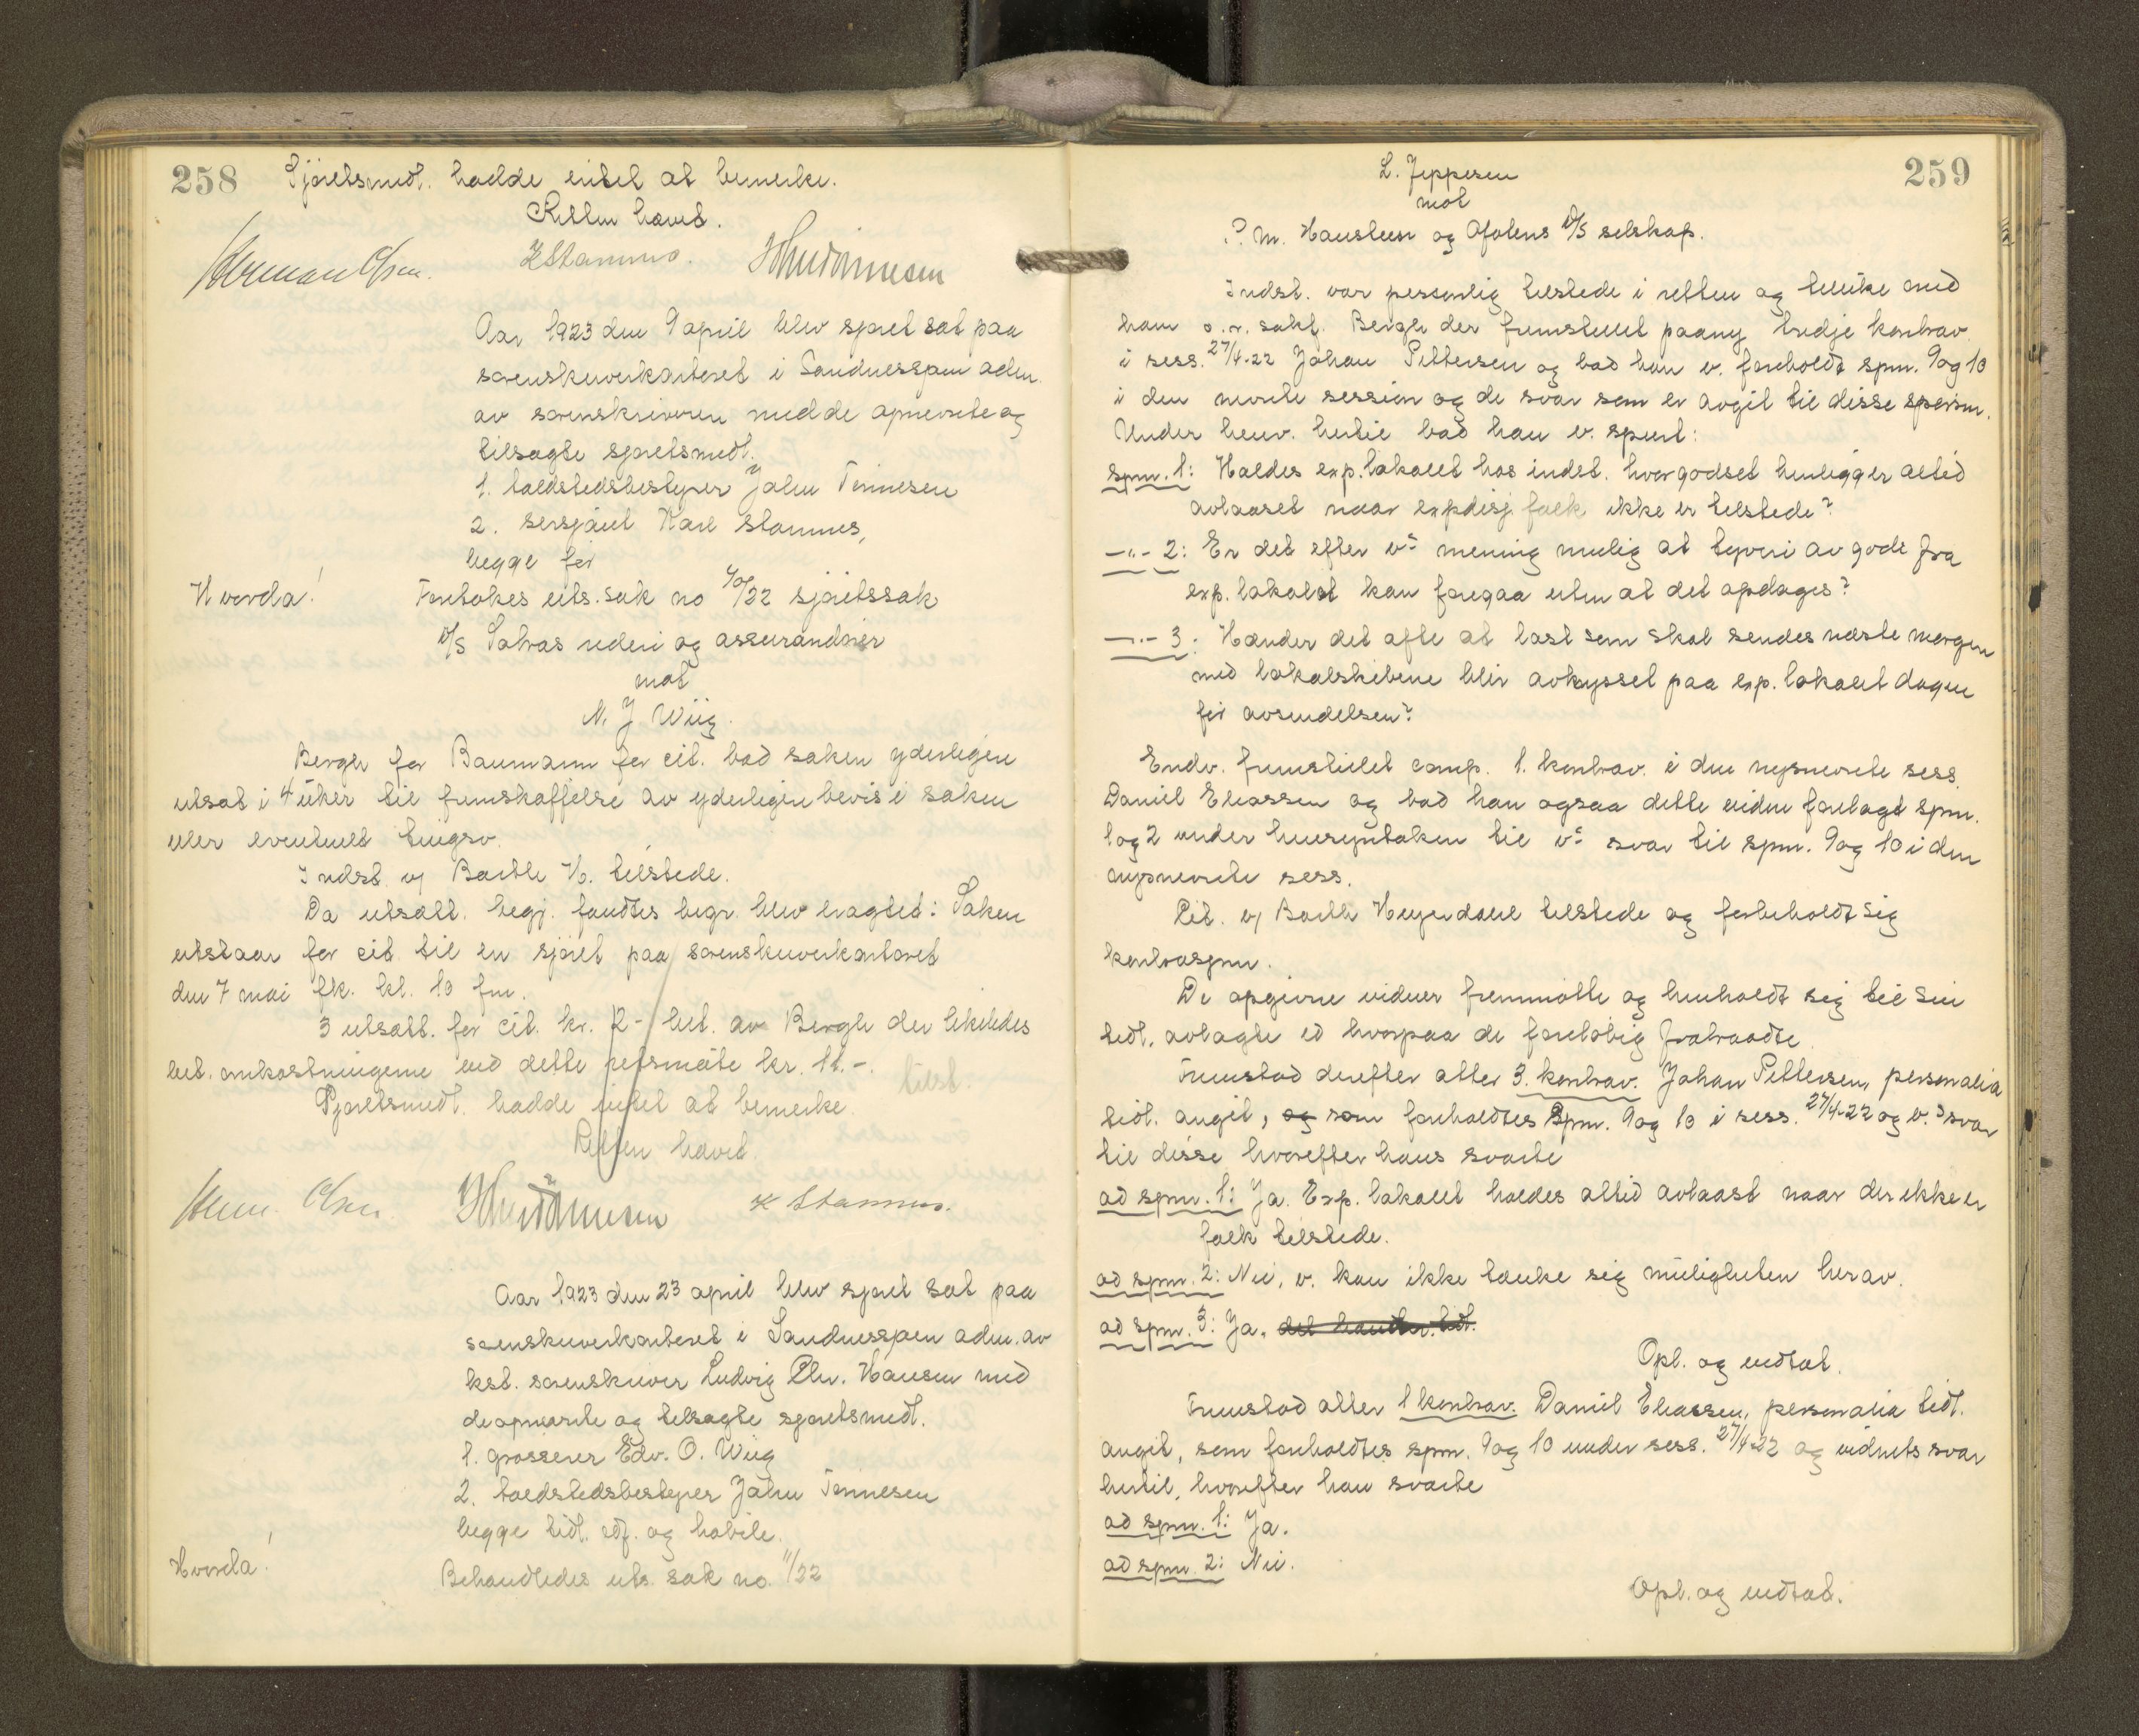 258 Sjøretsmedl. hadde intet at bemerke.
Retten hævet.
Herman Olsen. K Stamnes. John Tønnesen
Aar 1923 den 9 april blev sjøret sat paa
sorenskriverkontoret i Sandnessjøen adm.
av sorenskriveren med de opnævnte og
tilsagte sjøretsmedl.
1. toldstedsbestyrer John Tønnesen
2. sersjant Karl Stamnes,
begge før
Hvorda! Foretokes uts. sak no 40/22 sjøretssak
D/S Salvas rederi og assurandører
mot
N. J Wiig.
Bergh for Baumann for cit. bad saken yderligere
utsat i 4 uker til fremskaffelse av yderligere bevis i saken
eller eventuelt tingsv.
Indst. v/ Barth H. tilstede.
Da utsætt. begj. fandtes begr. blev eragtet: Saken
utstaar for cit. til en sjøret paa sorenskriverkontoret
den 7 mai fk. kl. 10 fm.
3 utsætt. for cit. kr. 12- bet. av Bergh der likeledes
bet. omkostningerne ved dette retsmøte kr. 11.-. tilst.
Sjøretsmedl. hadde intet at bemerke.
Retten hævet.
Herm. Olsen. John Tønnesen K Stamnes.
Aar 1923 den 23 april blev sjøret sat paa
sorenskriverkontoret i Sandnessjøen adm. av
kst. sorenskriver Ludvig Chr. Hansen med
de opnævnte og tilsagte sjøretsmedl.
1. grosserer Edv. O. Wiig
2. toldstedsbestyrer John Tønnesen
begge tidl. edf. og habile.
Hvorda! Behandledes uts. sak no. 11/22
259
L. Jeppesen
mot
P. M. Hansteen og Ofotens D/S selskap.
Indst. var personlig tilstede i retten og tillike med
ham o.r. sakf. Bergh der fremstillet paany tredje kontrav.
i sess. 27/4-22 Johan Pettersen og bad han v. foreholdt spm. 9 og 10
i den nævnte session og de svar som er avgit til disse spørsm.
Under henv. hertil bad han v. spurt:
spm. 1: Holdes exp. lokalet hos indst. hvor godset henligger altid
avlaaset naar expdisj. folk ikke er tilstede?
—"— 2: Er det efter v.s mening mulig at tyveri av gods fra
exp. lokalet kan foregaa uten at det opdages?
—"— 3: Hænder det ofte at last som skal sendes næste morgen
med lokalskibene blir avhysset paa exp. lokalet dagen
før avsendelsen?
Endv. fremstillet comp. 1. kontrav. i den nysnævnte sess.
Daniel Eliassen og bad han ogsaa dette vidne forelagt spm.
1 og 2 under hensyntaken til v.s svar til spm. 9 og 10 i den
nysnævnte sess.
Cit. v/ Barth Heyerdahl tilstede og forbeholdt sig
kontraspm.
De opgivne vidner fremmøtte og henholdt sig til sin
tidl. avlagte ed hvorpaa de foreløbig fratraadte.
Fremstod derefter atter 3. kontrav. Johan Pettersen, personalia
tidl. angit, og som foreholdtes spm. 9 og 10 i sess. 27/4-22 og v.s svar
til disse hvorefter hans svarte
ad spm. 1: Ja. Exp. lokalet holdes altid avlaast naar der ikke er
folk tilstede.
ad spm. 2: Nei, v. kan ikke tænke sig muligheten herav.
ad spm. 3: Ja.
Opl. og vedtat.
Fremstod atter 1 kontrav. Daniel Eliassen, personalia tidl.
angit, som foreholdtes spm. 9 og 10 under sess. 27/4-22 og vidnets svar
hertil, hvorefter han svarte
ad spm. 1: Ja.
ad spm. 2: Nei.
Opl. og vedtat.